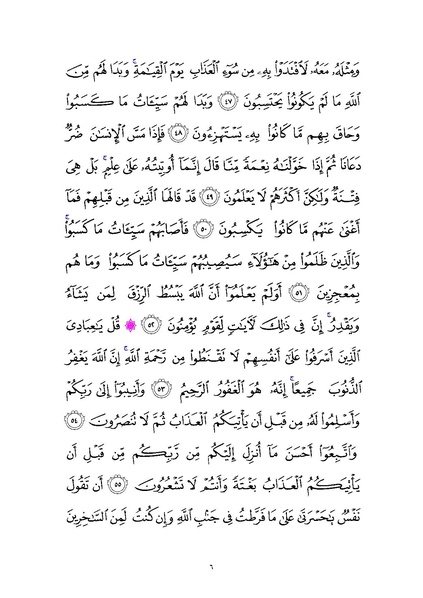 وَمِثْلَهُۥ مَعَهُۥ لَٱفْتَدَوْا۟ بِهِۦ مِن سُوٓءِ ٱلْعَذَابِ يَوْمَ ٱلْقِيَٰمَةِۚ وَبَدَا لَهُم مِّنَ
ٱللَّهِ مَا لَمْ يَكُونُوا۟ يَحْتَسِبُونَ ٤٧ وَبَدَا لَهُمْ سَيِّـَٔاتُ مَا كَسَبُوا۟
وَحَاقَ بِهِم مَّا كَانُوا۟ بِهِۦ يَسْتَهْزِءُونَ ٤٨ فَإِذَا مَسَّ ٱلْإِنسَٰنَ ضُرٌّ
دَعَانَا ثُمَّ إِذَا خَوَّلْنَٰهُ نِعْمَةً مِّنَّا قَالَ إِنَّمَآ أُوتِيتُهُۥ عَلَىٰ عِلْمٍۭۚ بَلْ هِىَ
فِتْنَةٌ وَلَٰكِنَّ أَكْثَرَهُمْ لَا يَعْلَمُونَ ٤٩ قَدْ قَالَهَا ٱلَّذِينَ مِن قَبْلِهِمْ فَمَآ
أَغْنَىٰ عَنْهُم مَّا كَانُوا۟ يَكْسِبُونَ ٥٠ فَأَصَابَهُمْ سَيِّـَٔاتُ مَا كَسَبُوا۟ۚ
وَٱلَّذِينَ ظَلَمُوا۟ مِنْ هَٰٓؤُلَآءِ سَيُصِيبُهُمْ سَيِّـَٔاتُ مَا كَسَبُوا۟ وَمَا هُم
بِمُعْجِزِينَ ٥١ أَوَلَمْ يَعْلَمُوٓا۟ أَنَّ ٱللَّهَ يَبْسُطُ ٱلرِّزْقَ لِمَن يَشَآءُ
وَيَقْدِرُۚ إِنَّ فِى ذَٰلِكَ لَءَايَٰتٍ لِّقَوْمٍ يُؤْمِنُونَ ٥٢ ۞ قُلْ يَٰعِبَادِىَ
ٱلَّذِينَ أَسْرَفُوا۟ عَلَىٰٓ أَنفُسِهِمْ لَا تَقْنَطُوا۟ مِن رَّحْمَةِ ٱللَّهِۚ إِنَّ ٱللَّهَ يَغْفِرُ
ٱلذُّنُوبَ جَمِيعًاۚ إِنَّهُۥ هُوَ ٱلْغَفُورُ ٱلرَّحِيمُ ٥٣ وَأَنِيبُوٓا۟ إِلَىٰ رَبِّكُمْ
وَأَسْلِمُوا۟ لَهُۥ مِن قَبْلِ أَن يَأْتِيَكُمُ ٱلْعَذَابُ ثُمَّ لَا تُنصَرُونَ ٥٤
وَٱتَّبِعُوٓا۟ أَحْسَنَ مَآ أُنزِلَ إِلَيْكُم مِّن رَّبِّكُم مِّن قَبْلِ أَن
يَأْتِيَكُمُ ٱلْعَذَابُ بَغْتَةً وَأَنتُمْ لَا تَشْعُرُونَ ٥٥ أَن تَقُولَ
نَفْسٌ يَٰحَسْرَتَىٰ عَلَىٰ مَا فَرَّطتُ فِى جَنۢبِ ٱللَّهِ وَإِن كُنتُ لَمِنَ ٱلسَّٰخِرِينَ
٦